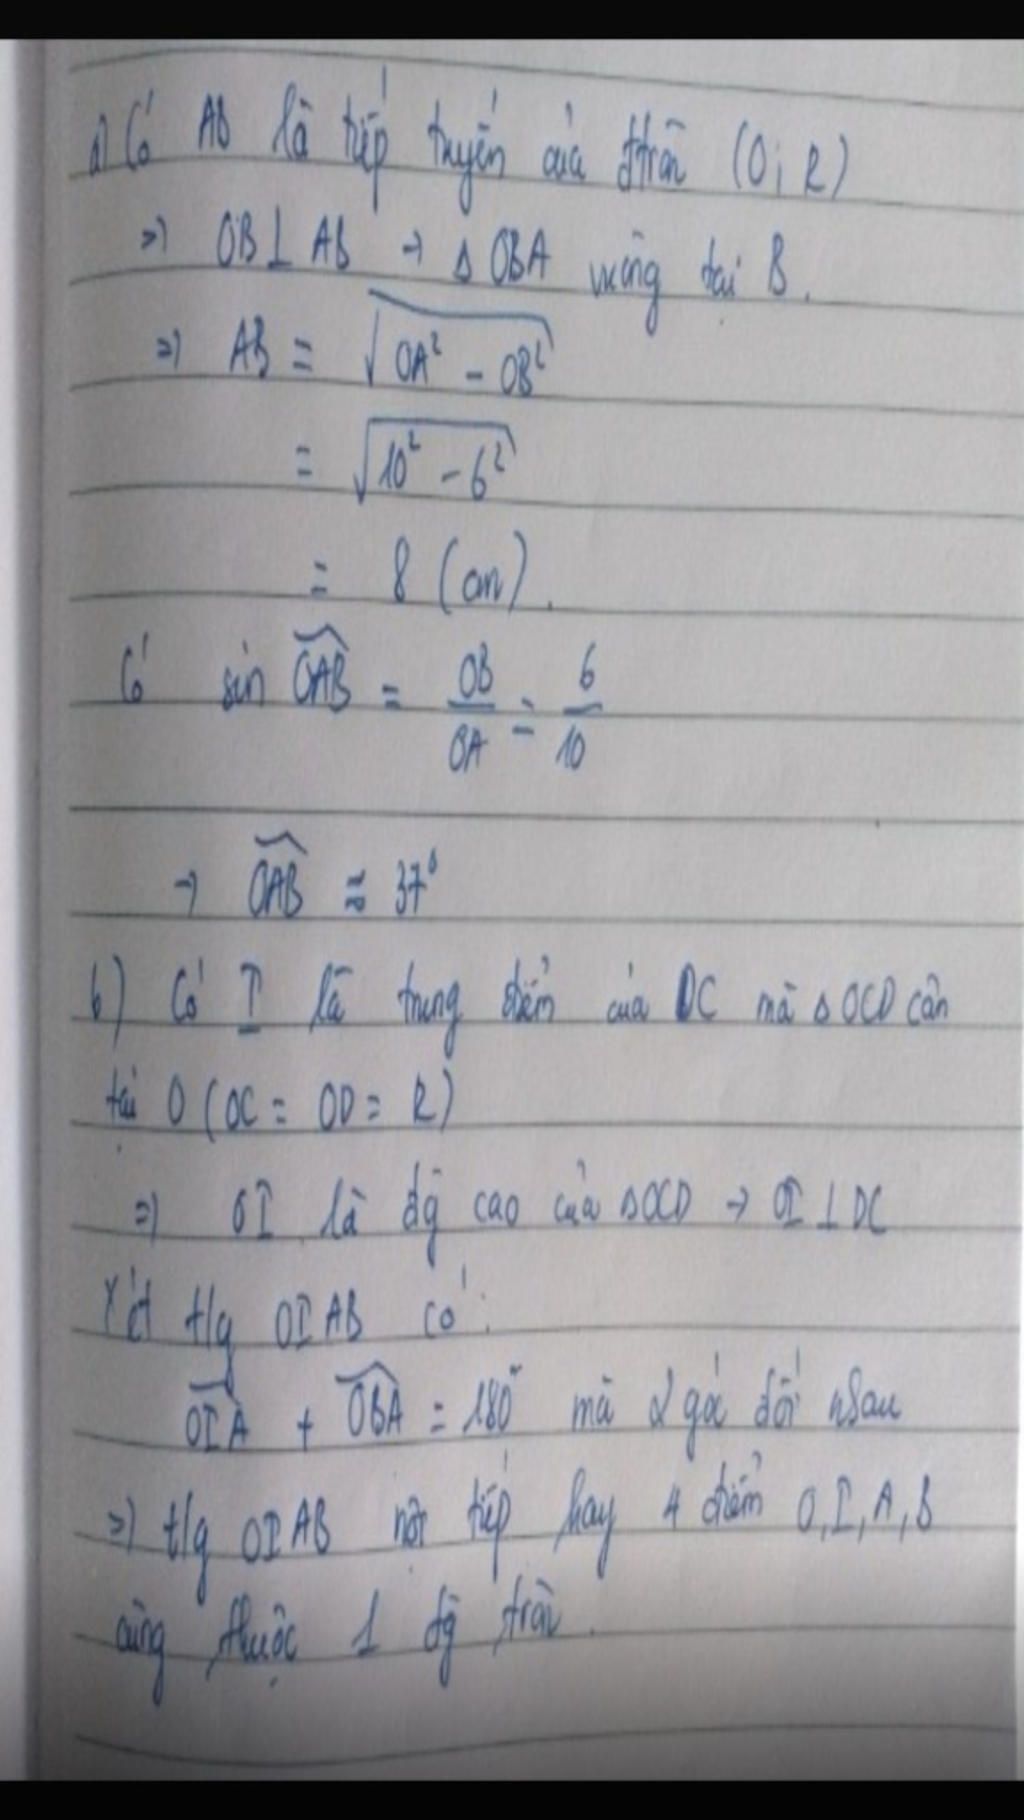 a) Có AB là tiếp tuyến của đtròn (O; R)
=> OB ⊥ AB → Δ OBA vuông tại B.
=> AB = √(OA² - OB²)
= √(10² - 6²)
= 8 (cm).
Có sin OAB^ = OB/OA = 6/10
→ OAB^ ≈ 37°
b) Có I là trung điểm của DC mà Δ OCD cân
tại O (OC = OD = R)
=> OI là đg cao của Δ OCD → OI ⊥ DC
Xét t/g OIAB có:
OIA^ + OBA^ = 180° mà 2 góc đối nhau
=> t/g OIAB nội tiếp hay 4 điểm O, I, A, B
cùng thuộc 1 đg tròn.